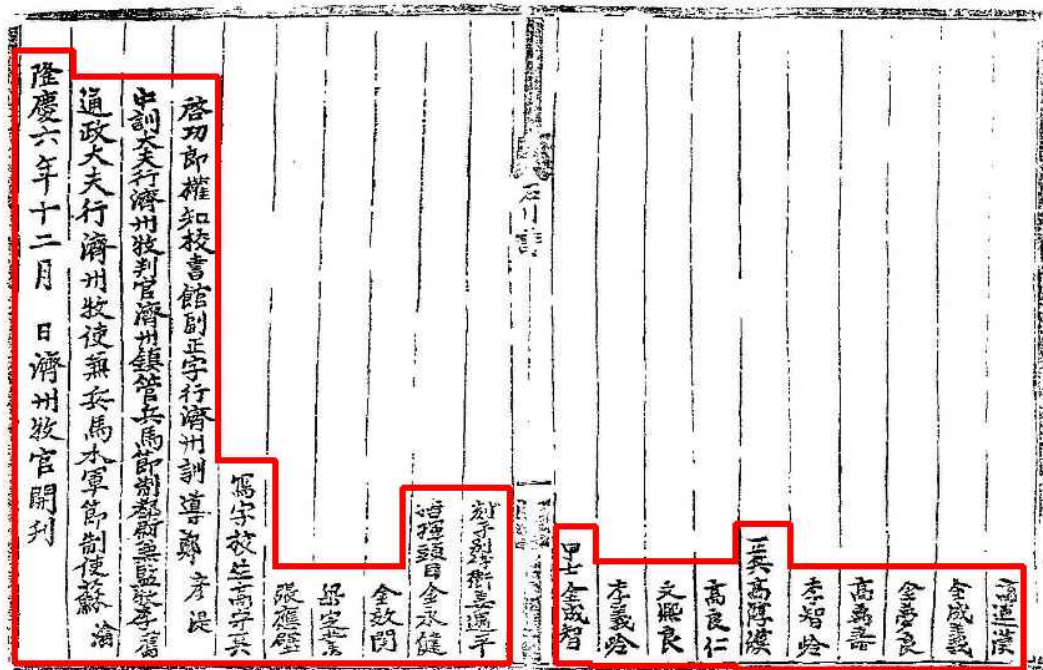 高連漢
金成義
金夢良
高萬壽
李智岭
正兵高厚漢
高良仁
文熙良
李義岭
甲士金成智
石川詩
刻手別侍衛姜遇平
指揮頭目金永健
金效閔
梁定業
張應璧
寫字校生高守其
啓功郎權知校書館副正字行濟州訓導鄭彦湜
中訓大夫行濟州牧判官濟州鎮管兵馬節制都尉兼監牧李
通政大夫行濟州牧使兼兵馬水軍節制使蘇瀹
隆慶六年十二月 日濟州牧官開刋